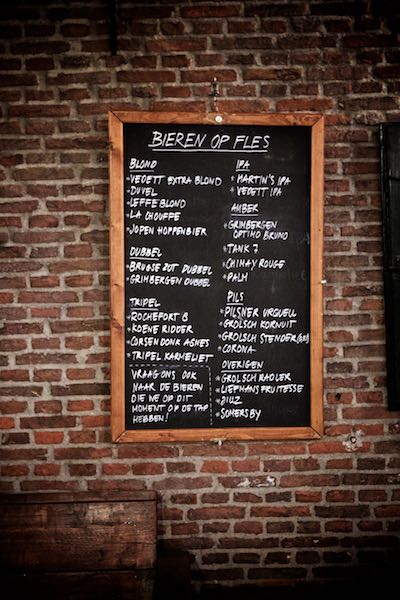 BIEREN OP FLES
BLOND
* VEDETT EXTRA BLOND
* DUVEL
* LEFFE BLOND
* LA CHOUFFE
* JOPEN HOPPENBIER
DUBBEL
* BRUGSE ZOT DUBBEL
* GRIMBERGEN DUBBEL
TRIPEL
* ROCHEFORT 8
* KOENE RIDDER
* CORSENDONK AGNES
* TRIPEL KARMELIET
VRAAG ONS OOK
NAAR DE BIEREN
DIE WE OP DIT
MOMENT OP DE TAP
HEBBEN!
IPA
* MARTIN'S IPA
* VEDETT IPA
AMBER
* GRIMBERGEN
OPTIMO BRUNO
* TANK 7
* CHIMAY ROUGE
* PALM
PILS
* PILSNER URQUELL
* GROLSCH KORNUIT
* GROLSCH STENDER
* CORONA
OVERIGEN
* GROLSCH RADLER
* LIEFMANS FRUITESSE
* SOMERSBY